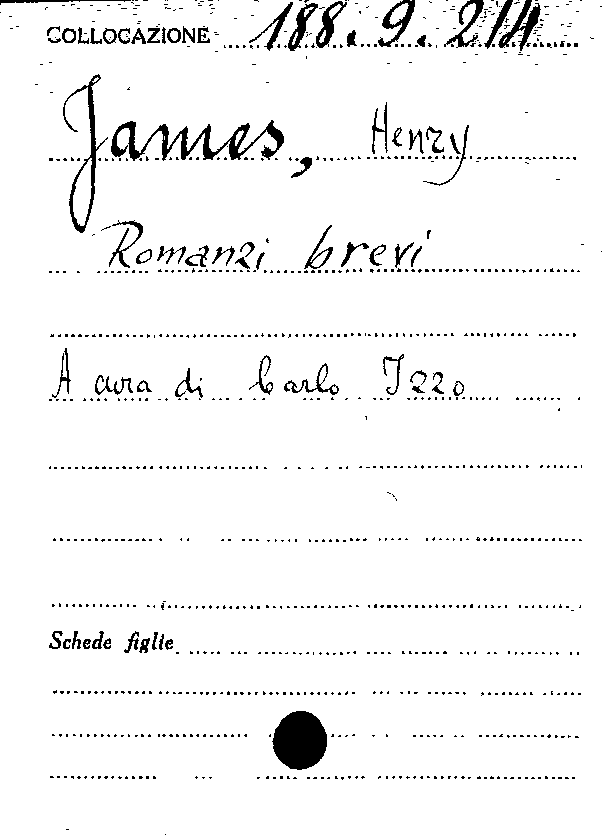 COLLOCAZIONE 188.9.2/4
James, Henry
Romanzi brevi
A cura di Carlo Izzo
Schede figlie